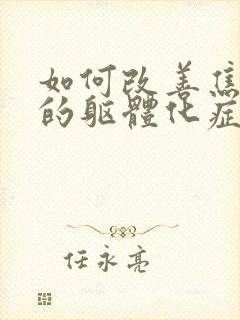 如何改善焦
的躯體化症
任永亮